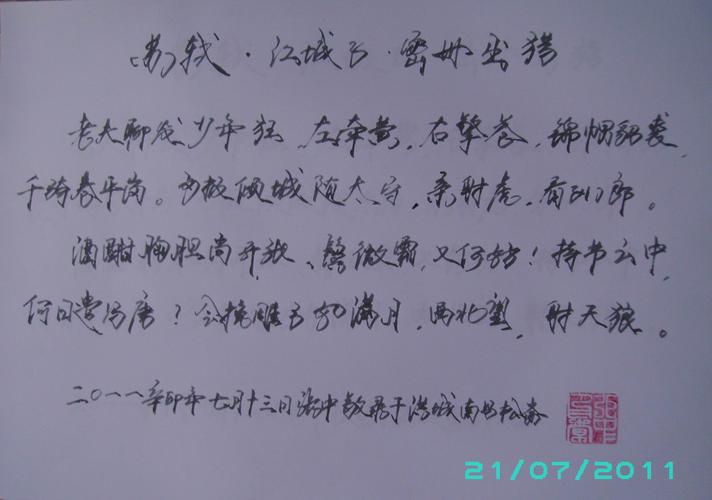 苏轼·江城子·密州出猎
老夫聊发少年狂 左牵黄，右擎苍，锦帽貂裘，
千骑卷平岗。为报倾城随太守，亲射虎，看孙郎。
酒酣胸胆尚开张、鬓微霜，又何妨！持节云中，
何日遣冯唐？会挽雕弓如满月，西北望，射天狼。
二〇一一年辛卯年七月十三日张中敬录于
21/07/2011